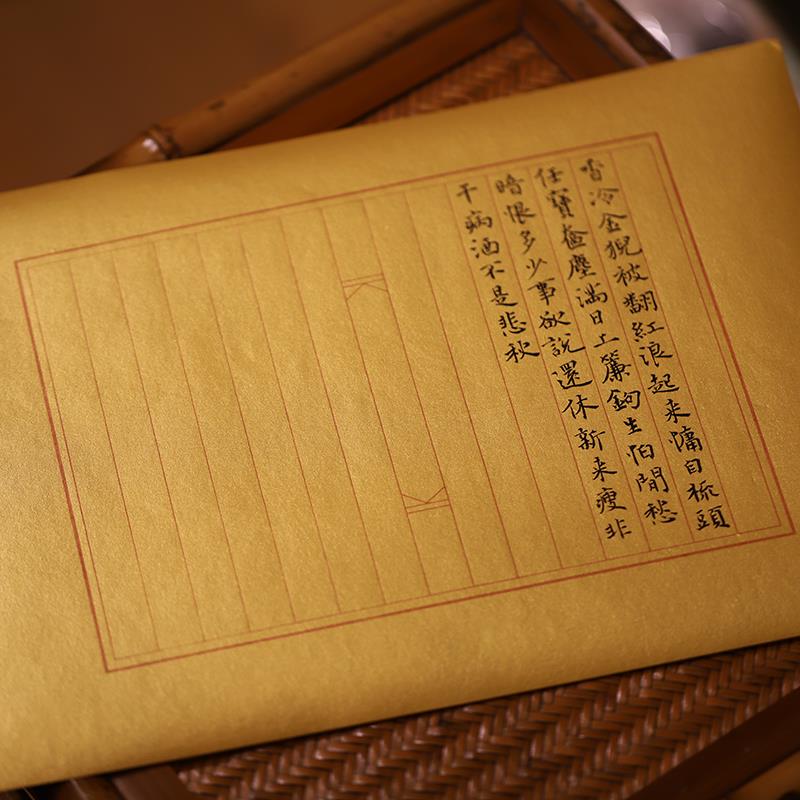 香冷金猊被翻紅浪起来慵自梳頭
任寶奩塵滿日上簾鉤生怕間愁
暗恨多少事欲說還休新来瘦非
干病酒不是悲秋